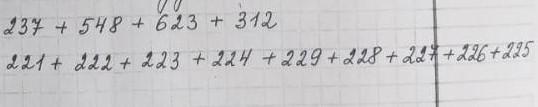 237 + 548 + 623 + 312
221 + 222 + 223 + 224 + 229 + 228 + 227 + 226 + 225